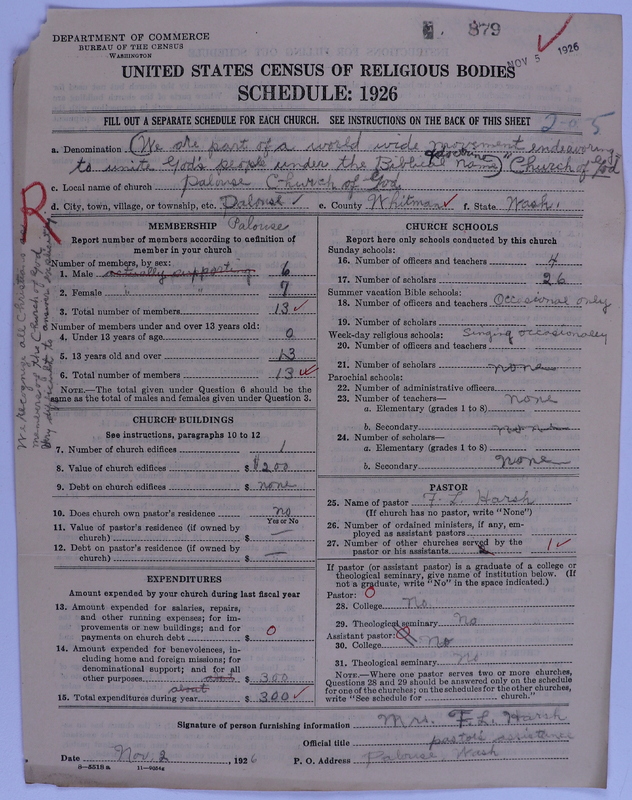 879
DEPARTMENT OF COMMERCE
BUREAU OF THE CENSUS
WASHINGTON
NOV 5 1926
UNITED STATES CENSUS OF RELIGIOUS BODIES
SCHEDULE: 1926
FILL OUT A SEPARATE SCHEDULE FOR EACH CHURCH. SEE INSTRUCTIONS ON THE BACK OF THIS SHEET
2-05
a. Denomination (We are part of a world wide movement endeavoring
to unite God's people under the Biblical doctrine name) "Church of God
c. Local name of church Palouse Church of God
d. City, town, village, or township, etc. Palouse e. County Whitman f. State Wash.
MEMBERSHIP Palouse
Report number of members according to definition of
member in your church
Number of members, by sex:
1. Male actually supporting 6
2. Female " " 7
3. Total number of members 13
Number of members under and over 13 years old:
4. Under 13 years of age 0
5. 13 years old and over 13
6. Total number of members 13
NOTE.—The total given under Question 6 should be the
same as the total of males and females given under Question 3.
We recognize all Christians as
members of the Church of God
CHURCH BUILDINGS
See instructions, paragraphs 10 to 12
7. Number of church edifices 1
8. Value of church edifices $ $200
9. Debt on church edifices $ none
10. Does church own pastor's residence? no
Yes or No
11. Value of pastor's residence (if owned by
church) $ —
12. Debt on pastor's residence (if owned by
church) $ —
EXPENDITURES
Amount expended by your church during last fiscal year
13. Amount expended for salaries, repairs,
and other running expenses; for im-
provements or new buildings; and for
payments on church debt $ 0
14. Amount expended for benevolences, in-
cluding home and foreign missions; for
denominational support; and for all
other purposes about $ 300
15. Total expenditures during year about $ 300
CHURCH SCHOOLS
Report here only schools conducted by this church
Sunday schools:
16. Number of officers and teachers 4
17. Number of scholars 26
Summer vacation Bible schools:
18. Number of officers and teachers Occasional only
19. Number of scholars
Week-day religious schools: Singing occasionaley
20. Number of officers and teachers
21. Number of scholars none
Parochial schools:
22. Number of administrative officers
23. Number of teachers— none
a. Elementary (grades 1 to 8)
b. Secondary none
24. Number of scholars—
a. Elementary (grades 1 to 8)
b. Secondary none
PASTOR
25. Name of pastor F. L. Harsh
(If church has no pastor, write "None")
26. Number of ordained ministers, if any, em-
ployed as assistant pastors
27. Number of other churches served by the
pastor or his assistants 1
If pastor (or assistant pastor) is a graduate of a college or
theological seminary, give name of institution below. (If
not a graduate, write "No" in the space indicated.)
Pastor: 0
28. College No
29. Theological seminary No
Assistant pastor: 0
30. College No
31. Theological seminary No
NOTE.—Where one pastor serves two or more churches,
Questions 28 and 29 should be answered only on the schedule
for one of the churches; on the schedules for the other churches,
write "See schedule for church."
Signature of person furnishing information Mrs. F. L. Harsh
Official title pastor's assistance
Date Nov. 2, 1926 P. O. Address Palouse, Wash
8—5518a 11—9004a